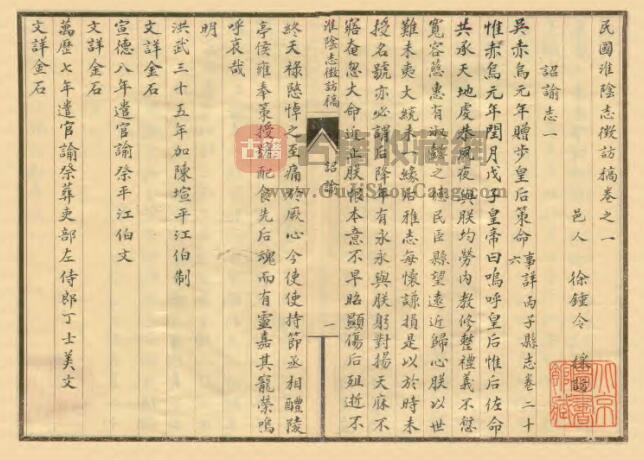 民國淮陰志徵訪稿卷之一
邑人 徐鍾令 採訪
詔諭志一
吳赤烏元年贈步皇后策命 事詳丙子縣志卷二十六
惟赤烏元年閏月戊子皇帝曰嗚呼皇后惟后佐命
共承天地虔恭夙夜與朕均勞內教修整禮義不愆
寬容慈惠有淑懿之德民臣縣望遠近歸心朕以世
難未夷大統未一緣后雅志每懷謙損是以於時未
授名號亦必謂后降年有永永與朕躬對揚天庥不
寤奄忽大命近止朕恨本意不早昭顯傷后殂逝不
淮陰志徵訪稿 詔諭 一
終天祿愍悼之至痛於厥心今使使持節丞相醴陵
亭侯雍奉策授號配食先后魂而有靈嘉其寵榮嗚
呼哀哉
明
洪武三十五年加陳瑄平江伯制
文詳金石
宣德八年遣官諭祭平江伯文
文詳金石
萬歷七年遣官諭祭葬吏部左侍郎丁士美文
文詳金石
古籍收藏網
www.GuJiShouCang.com